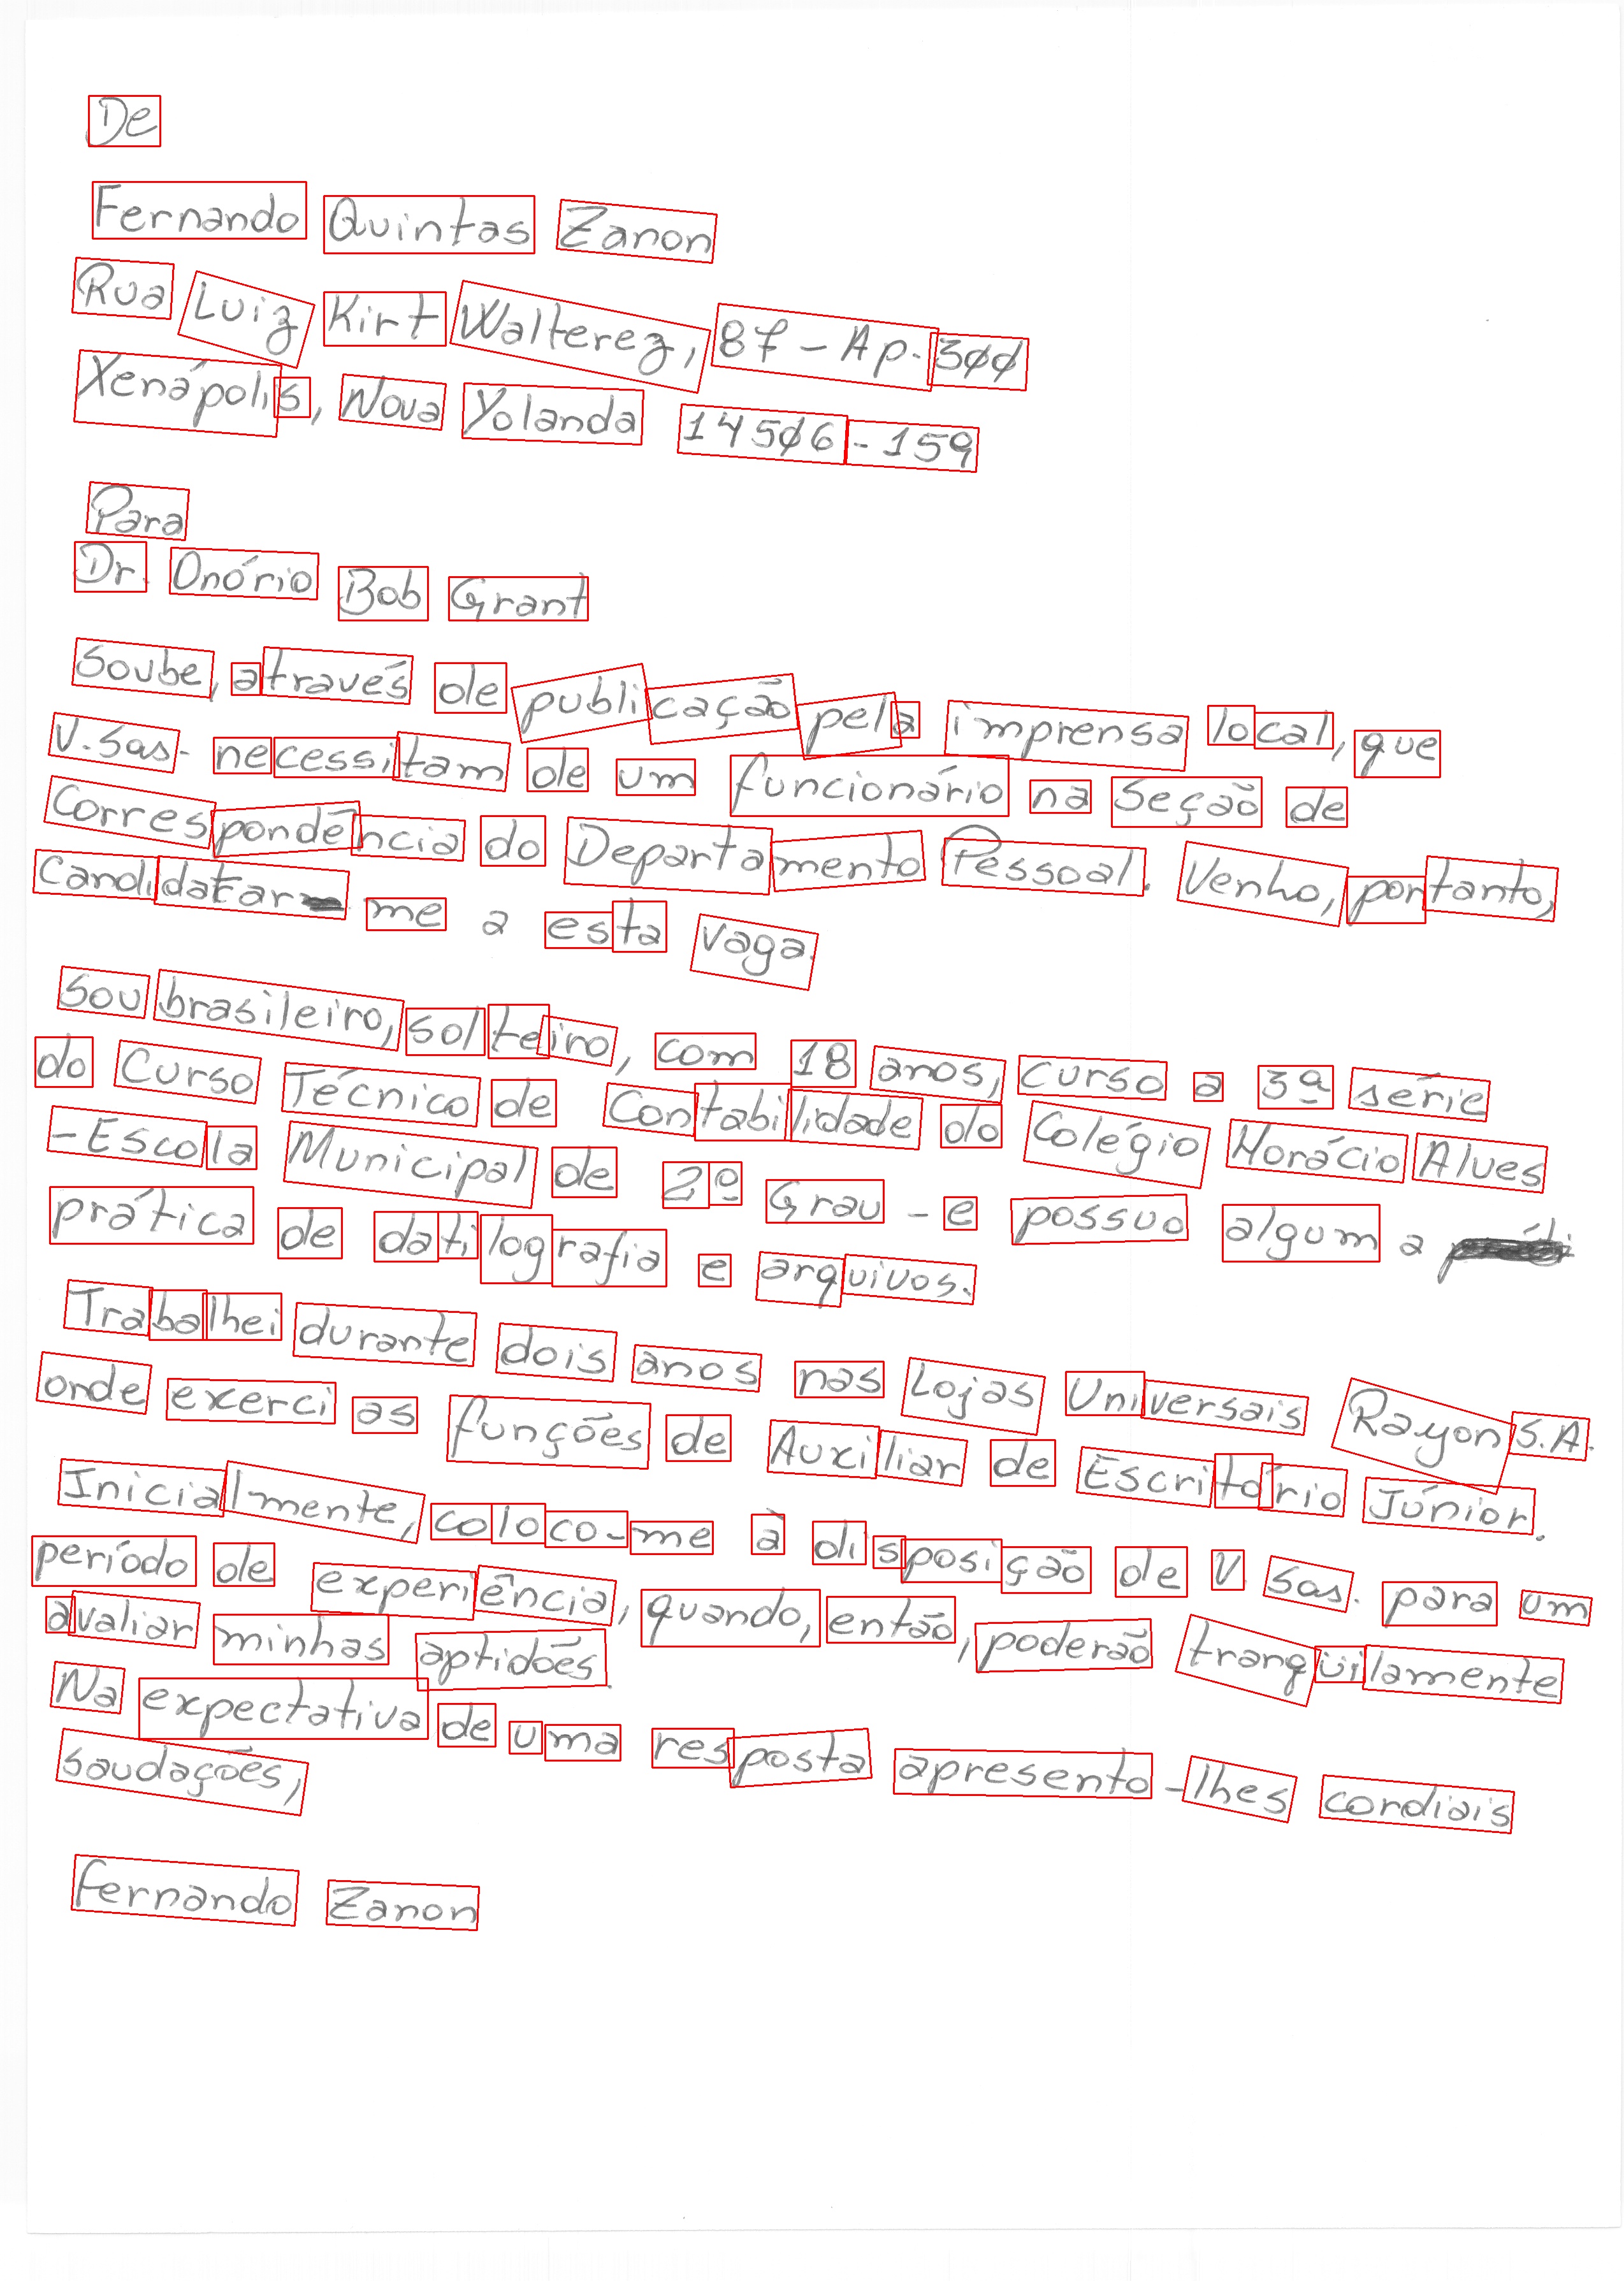 De
Fernando Quintas Zanon
Rua Luiz Kirt Walterez, 87 - Ap. 300
Xenápolis, Nova Yolanda 14506-159
Para
Dr. Onório Bob Grant
Soube, através de publicação pela imprensa local, que
V.Sas. necessitam de um funcionário na Seção de
Correspondência do Departamento Pessoal. Venho, portanto,
Candidatar me a esta vaga.
Sou brasileiro, solteiro, com 18 anos, curso a 3ª série
do Curso Técnico de Contabilidade do Colégio Horácio Alves
-Escola Municipal de 2º Grau - e possuo alguma
prática de datilografia e arquivos.
Trabalhei durante dois anos nas Lojas Universais Rayon S.A.
onde exerci as funções de Auxiliar de Escritório Júnior.
Inicialmente, coloco-me à disposição de V. Sas. para um
período de experiência, quando, então, poderão tranqüilamente
avaliar minhas aptidões.
Na expectativa de uma resposta apresento-lhes cordiais
saudações,
Fernando Zanon